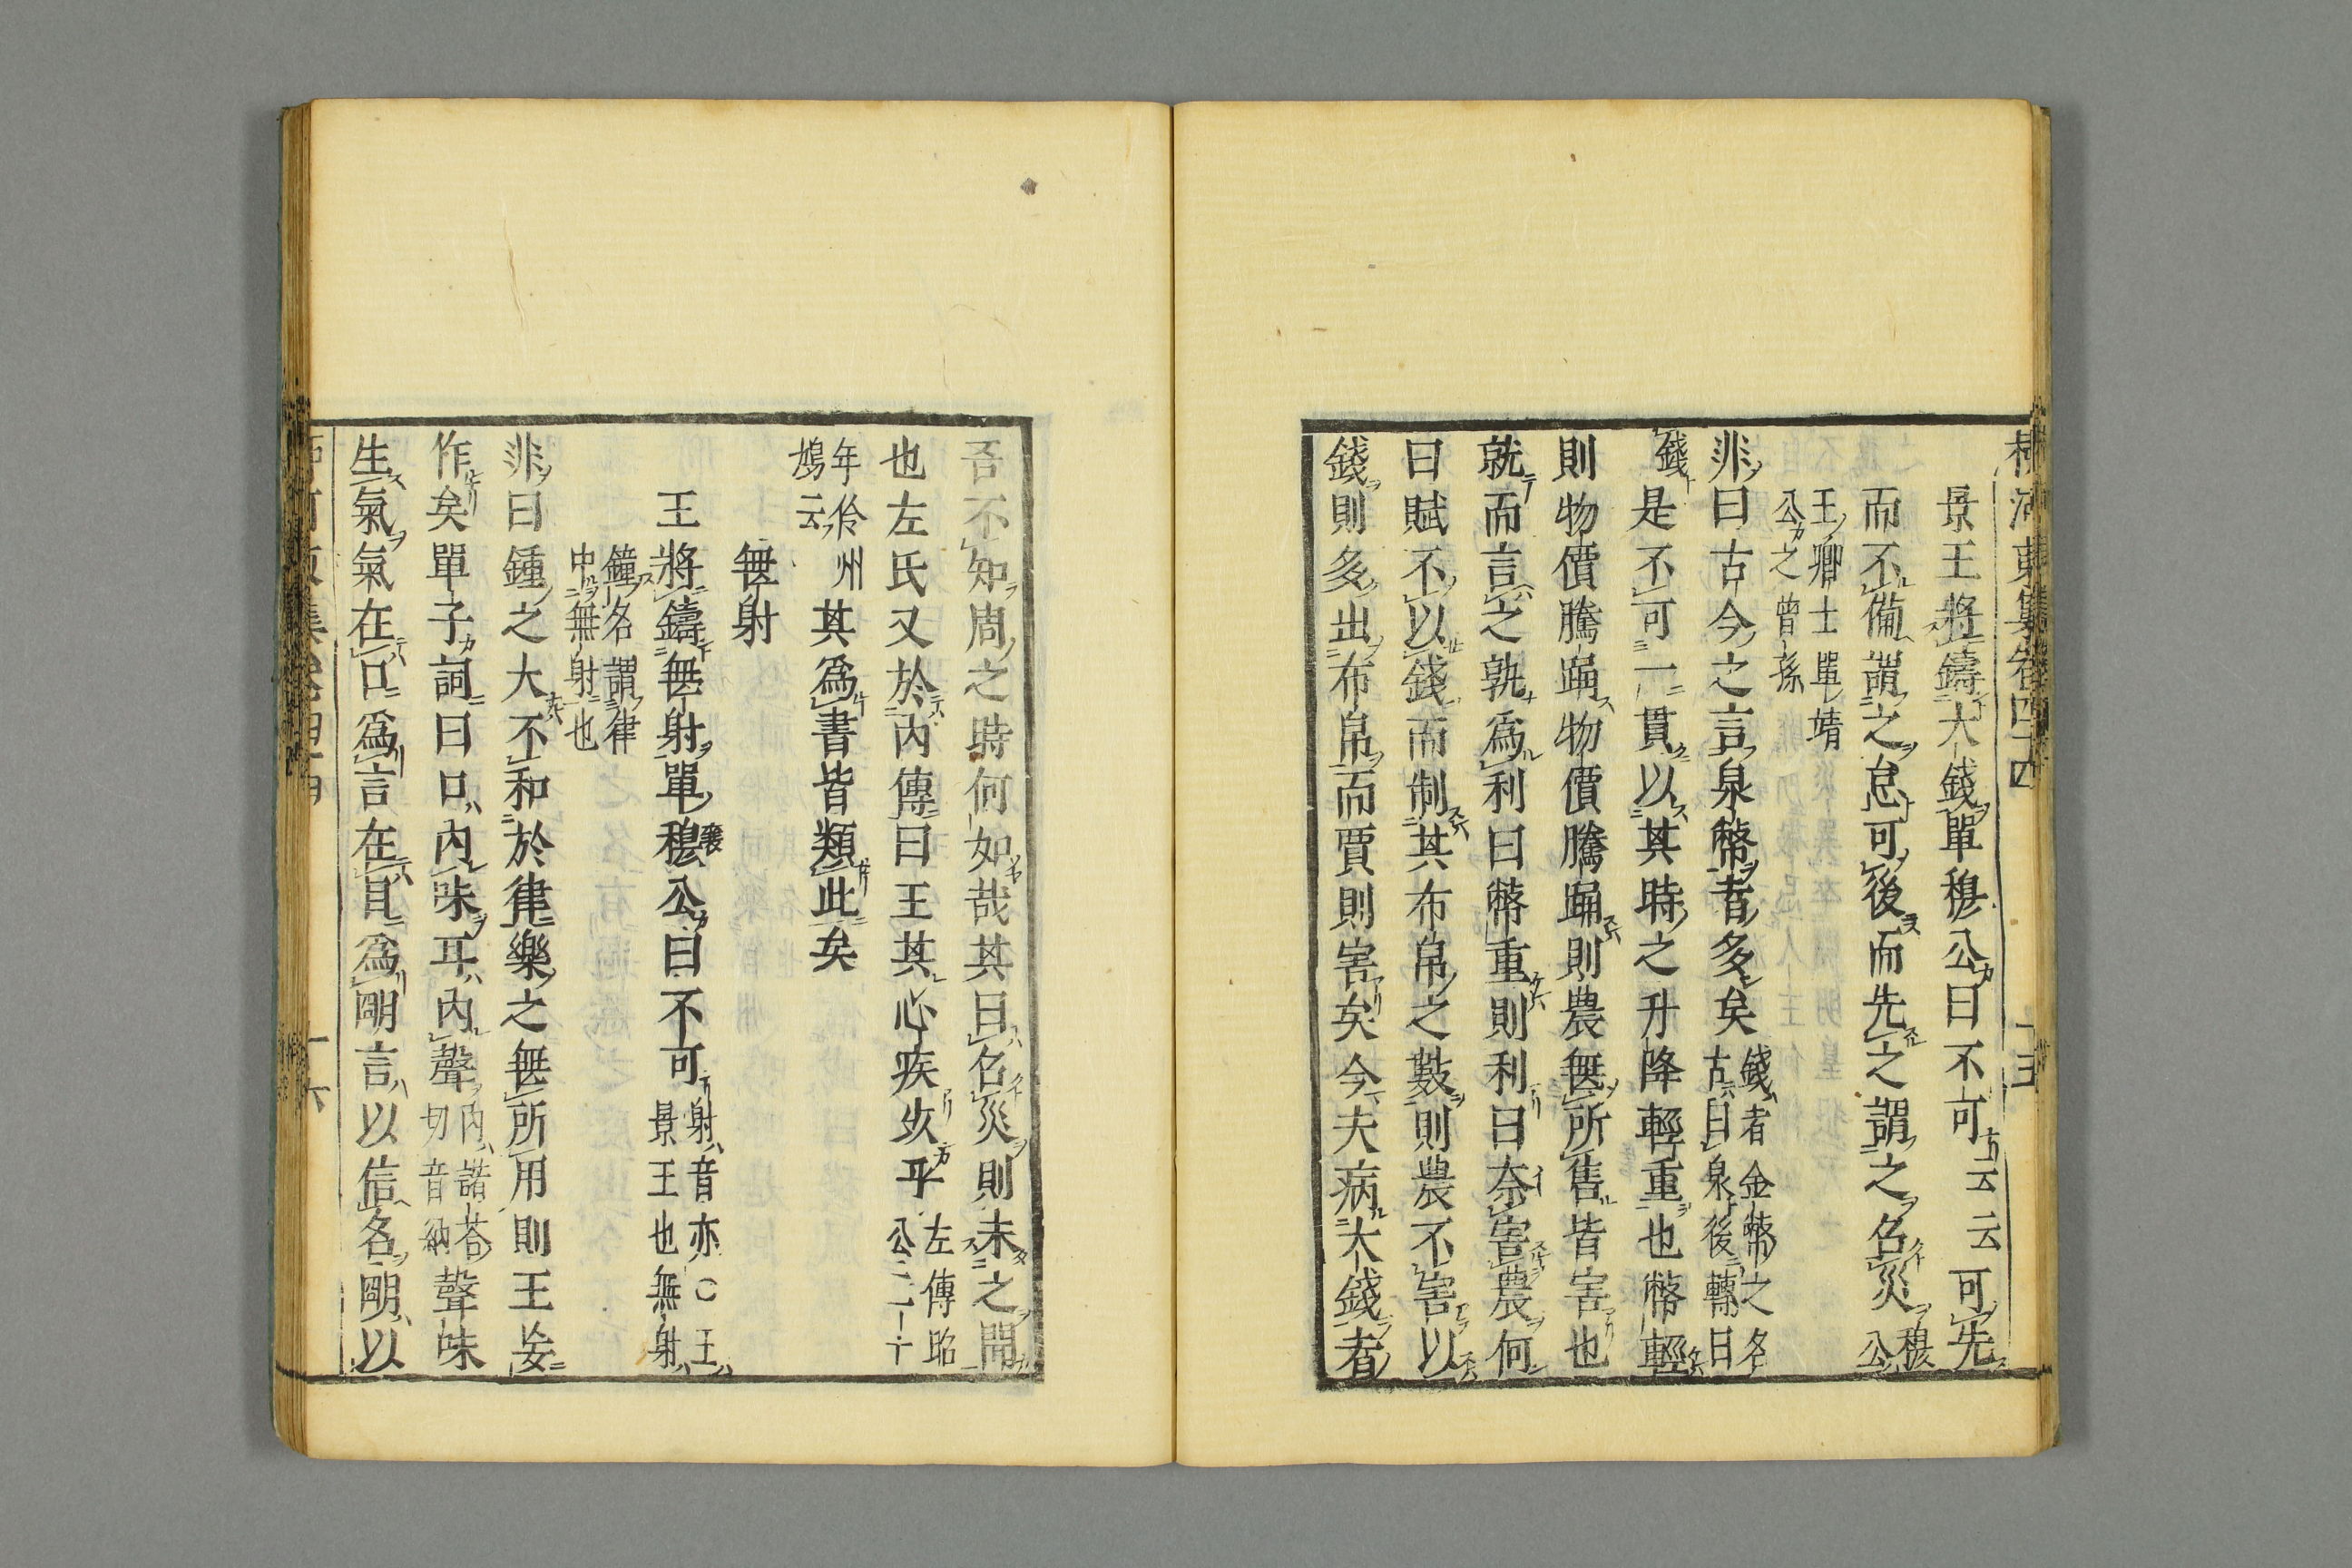 柳河東集卷四十四
十五
景王將鑄大錢單穆公曰不可云云可先
而不備謂之怠可後而先之謂之名災穆公
王卿士單靖公之曾孫
非曰古今之言泉幣者多矣錢者金幣之名古曰泉後轉曰
錢是不可一貫以其時之升降輕重也幣輕
則物價騰踊物價騰踊則農無所售皆害也
就而言之孰爲利曰幣重則利曰奈害農何
曰賦不以錢而制其布帛之數則農不害以
錢則多出布帛而賈則害矣今夫病大錢者
吾不知周之時何如哉其曰名災則未之聞
也左氏又於內傳曰王其心疾死乎左傳昭公二十
年伶州鳩云其爲書皆類此矣
無射
王將鑄無射單穆公曰不可射音亦○王景王也無射
鐘名謂律中無射也
非曰鍾之大不和於律樂之無所用則王妄
作矣單子詞曰口內味耳內聲內諾荅切音納聲味
生氣氣在口爲言在目爲明言以信名明以
十六